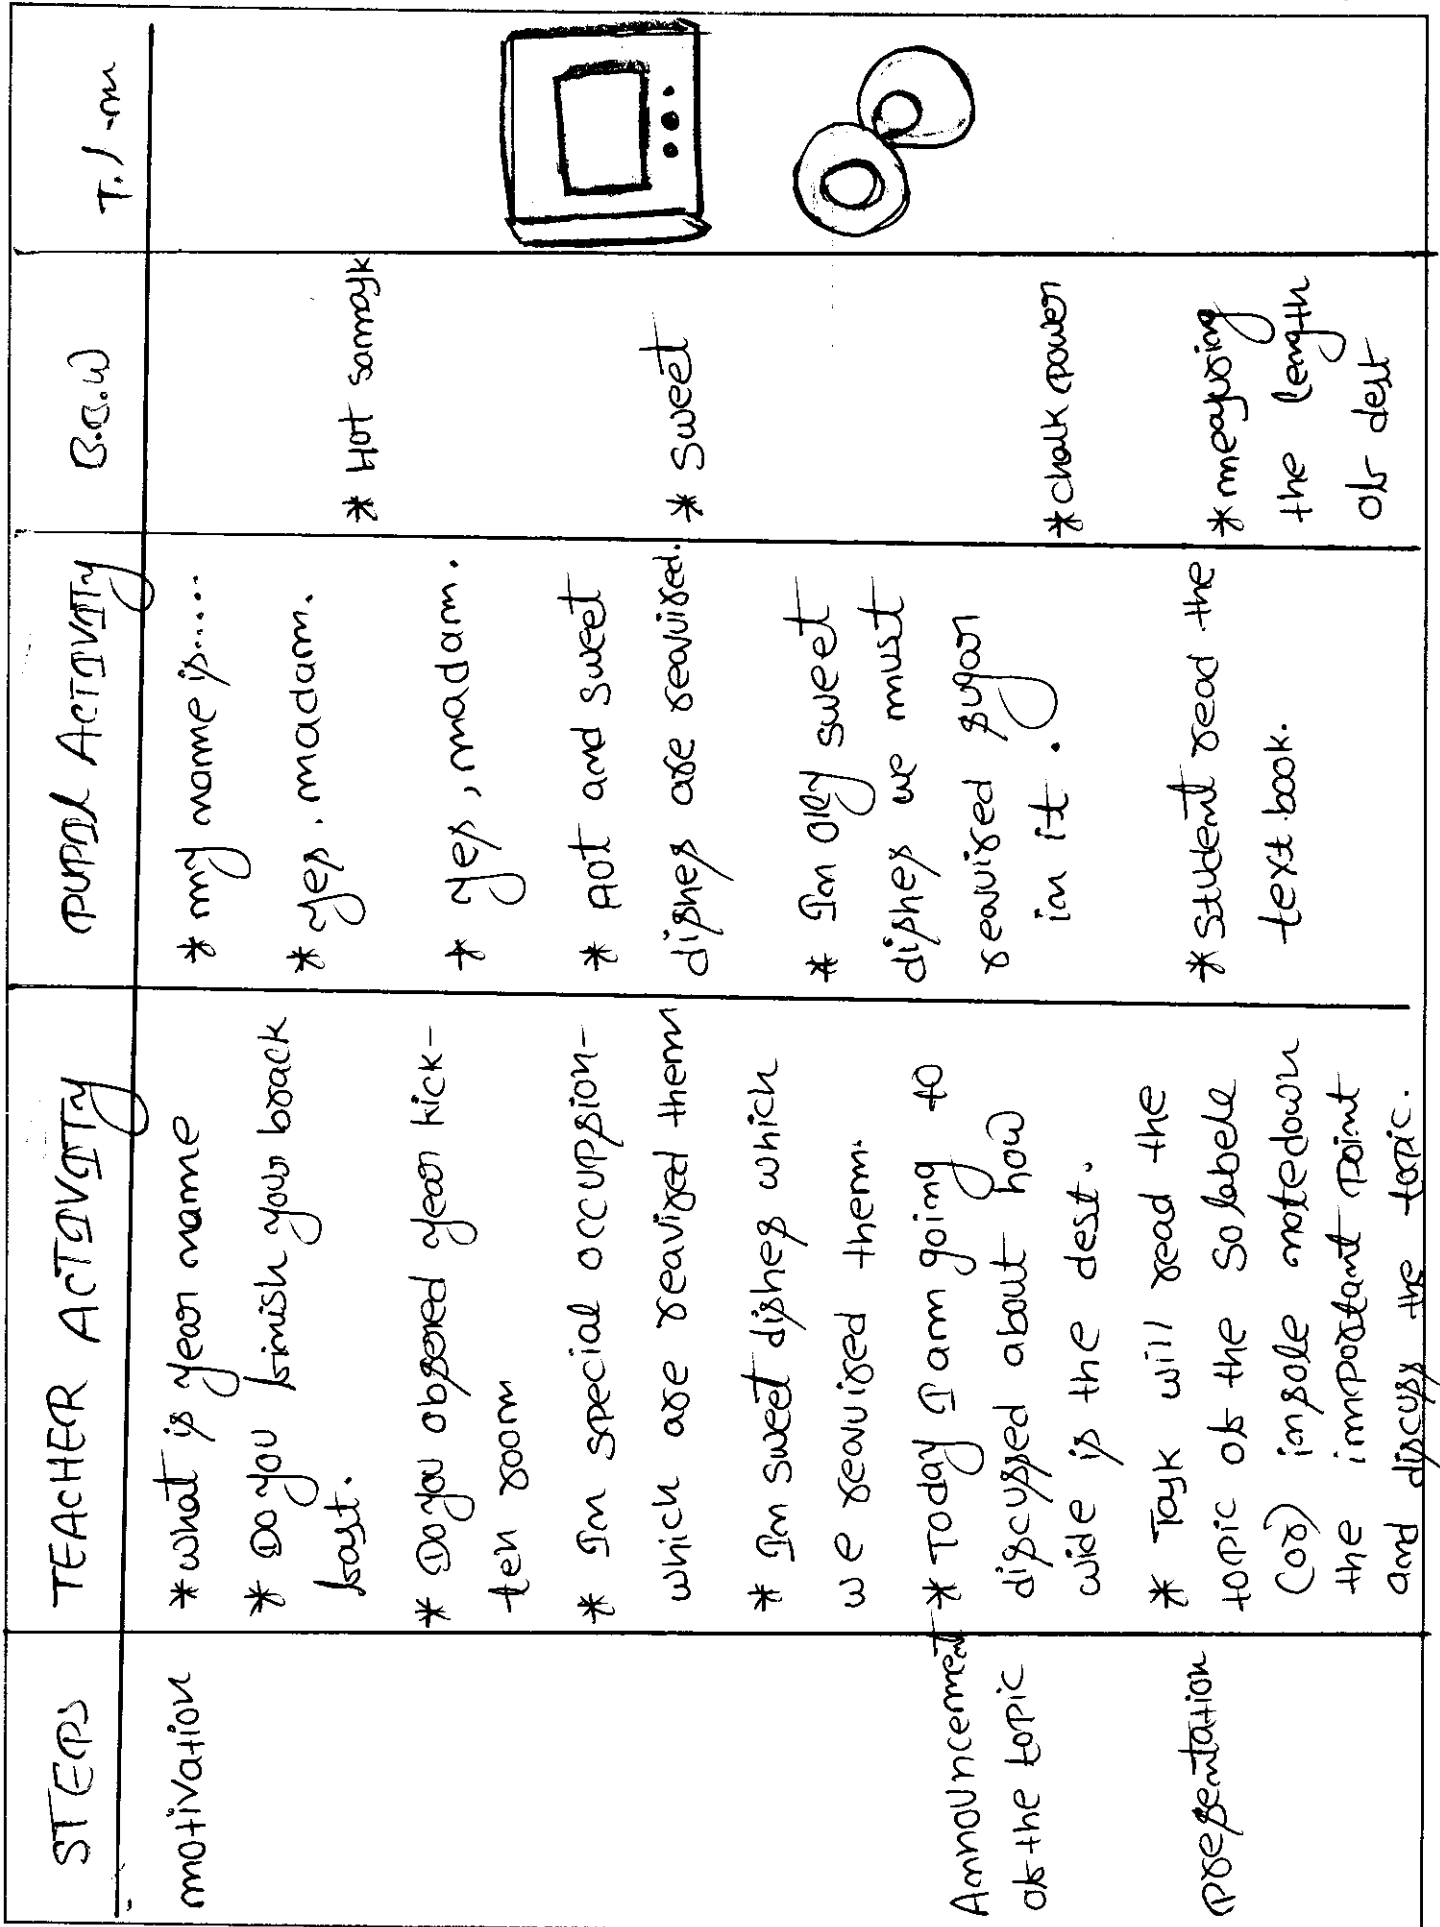 STEPS
TEACHER ACTIVITy
PUPIL ACTIVITy
B.B.W
T.l-m
motivation
*what is year name
* Do you finish your brack
fast.
* Do you obsered year kick-
ten room
* In special occupsion-
which are reavired them
* In sweet dishes which
we reavuired them.
* my name is.....
* yes, madam.
* yes, madam.
* Hot and sweet
dishes are reavired.
* In olly sweet
dishes we must
reavuired sugar
in it.
* Hot samayk
* Sweet
Announcement
of the topic
* Today I am going to
discussed about how
wide is the dest.
* chalk power
presentation
* Tayk will read the
topic of the So labele
(or) insole notedown
the important point
and discuss the topic.
* Student read the
text book.
* measuring
the length
of dest